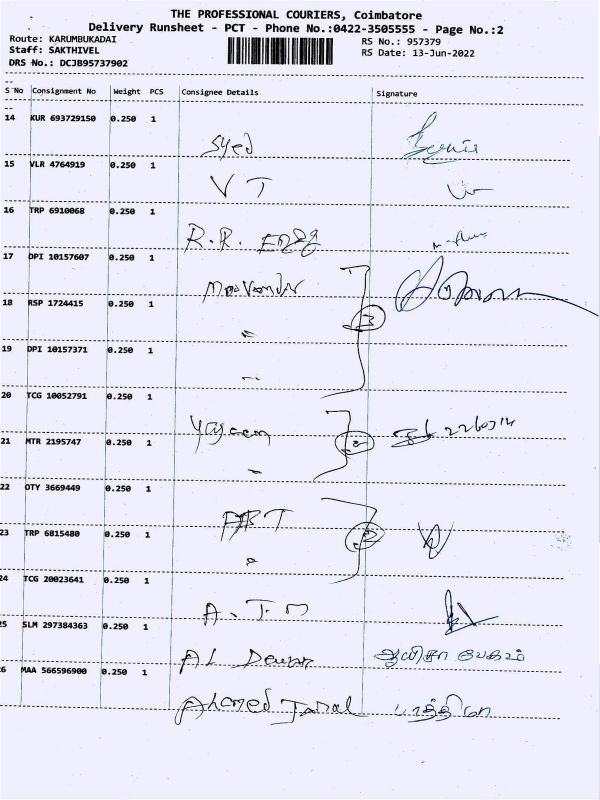 THE PROFESSIONAL COURIERS, Coimbatore
Delivery Runsheet - PCT - Phone No.:0422-3505555 - Page No.:2
Route: KARUMBUKADAI
RS No.: 957379
Staff: SAKTHIVEL
RS Date: 13-Jun-2022
DRS No.: DCJB95737902
S No Consignment No Weight PCS Consignee Details Signature
14 KUR 693729150 0.250 1
Syed
15 VLR 4764919 0.250 1
V T
16 TRP 6910068 0.250 1
R.R. Engg
17 DPI 10157607 0.250 1
18 RSP 1724415 0.250 1
3
"
19 DPI 10157371 0.250 1
"
20 TCG 10052791 0.250 1
Yaseen
21 MTR 2195747 0.250 1
2
"
22 OTY 3669449 0.250 1
ABT
23 TRP 6815480 0.250 1
2
"
24 TCG 20023641 0.250 1
A.T.M
25 SLM 297384363 0.250 1
AL ஆயிசா பேகம்
26 MAA 566596900 0.250 1
Ahmed Jamal பாத்திமா